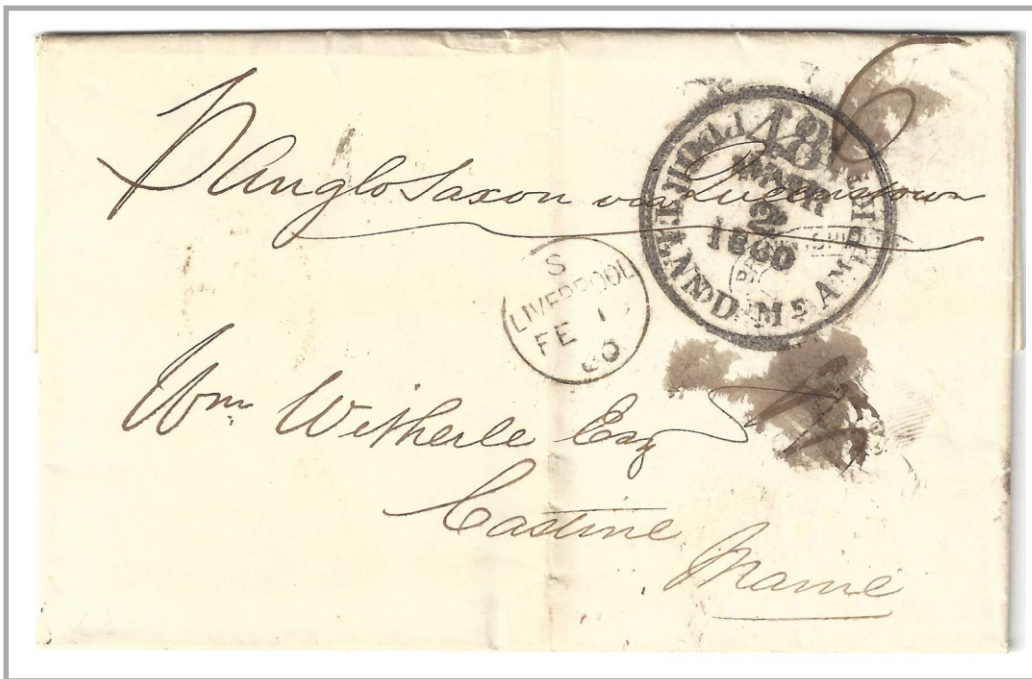 6
P Anglo Saxon via Queenstown
PORTLAND ME. AM. PKT.
48
MAR
2
1860
S
LIVERPOOL
FE 1
60
Wm Witherle Esq
Castine
Maine